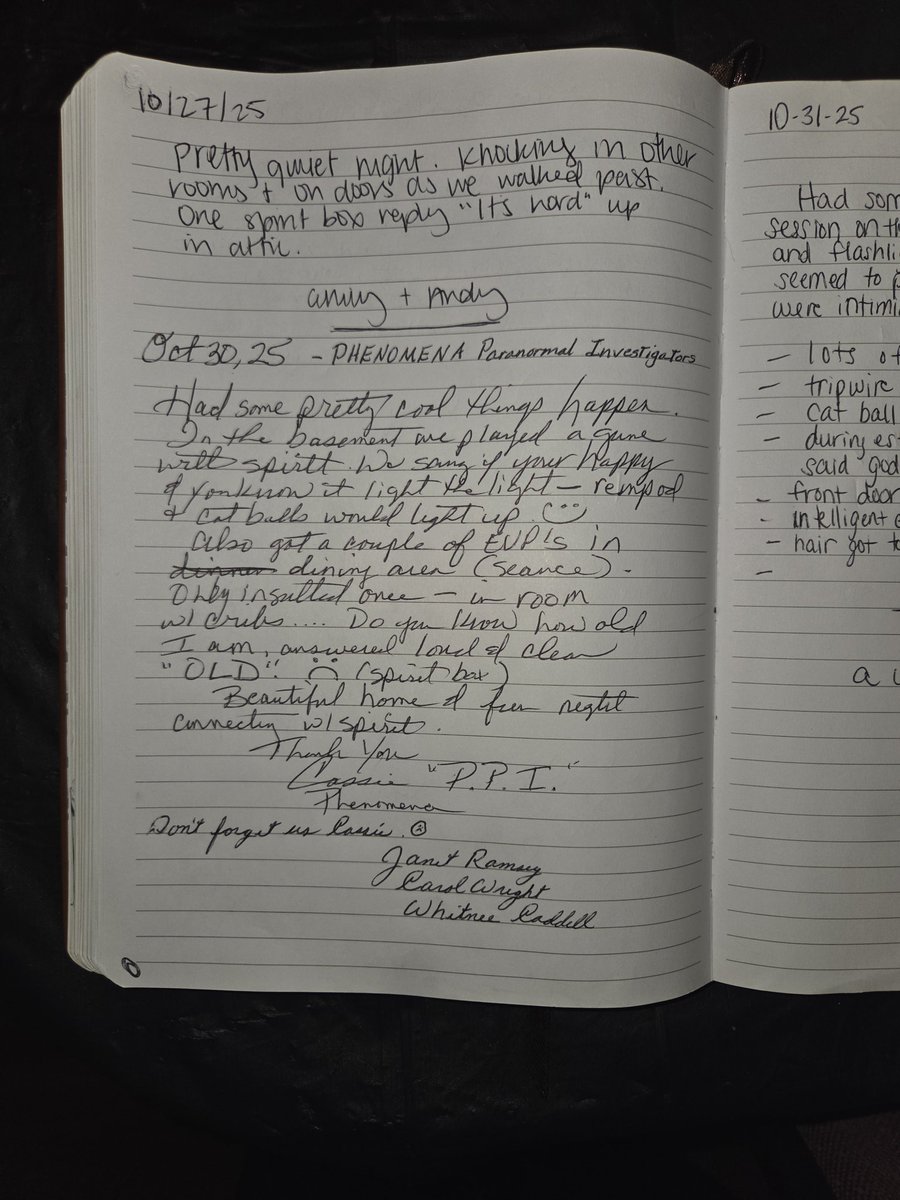 10/27/25
Pretty quiet night. Knocking in other
rooms + on doors as we walked past.
One spirit box reply "It's hard" up
in attic.
+ Andy
Oct 30, 25 - PHENOMENA Paranormal Investigators
Had some pretty cool things happen.
In the basement we played a game
with spirit. We sang if your happy
& you know it light the light - rempod
& cat balls would light up ☺
Also got a couple of EVP's in
dinner dining area (seance).
Only insulted once - in room
w/ cribs.... Do you know how old
I am, answered loud & clear
"OLD". ☹ (spirit box)
Beautiful home & fun night
connecting w/ spirit.
Thank You
Cassie "P.P.I."
Phenomena
Don't forget us Cassie. ☺
Janet Ramsey
Carol Wright
Whitnee Caddell
10-31-25
Had som
session on th
and flashli
seemed to p
were intimi
- lots of
- tripwire
- cat ball
- during es
said god
- front door
- intelligent
- hair got t
-